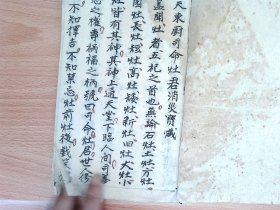 天東廚司命灶君消災寶懺
盖聞灶者五祀之首也無論石灶土灶方灶
圓灶長灶短灶高灶矮灶新灶旧灶大灶小
灶皆有其神其神上通天堂下臨人間司
之權專禍福之柄號曰司命灶君世
不知擇吉不知禁忌灶前灶後